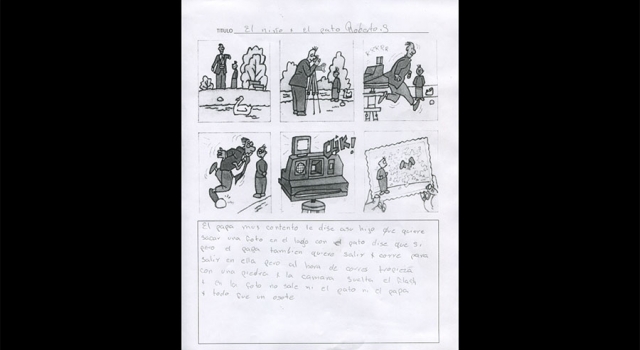 TITULO: El niño y el pato Roberto.S
El papa muy contento le dise asu hijo que quiere
sacar una foto en el lago con el pato dise que si
pero el papa tambien quiere salir & corre para
salir en ella pero al hora de tropieza
con una piedra & la camara suelta el flash
& en la foto no sale ni el pato ni el papa
& todo fue un